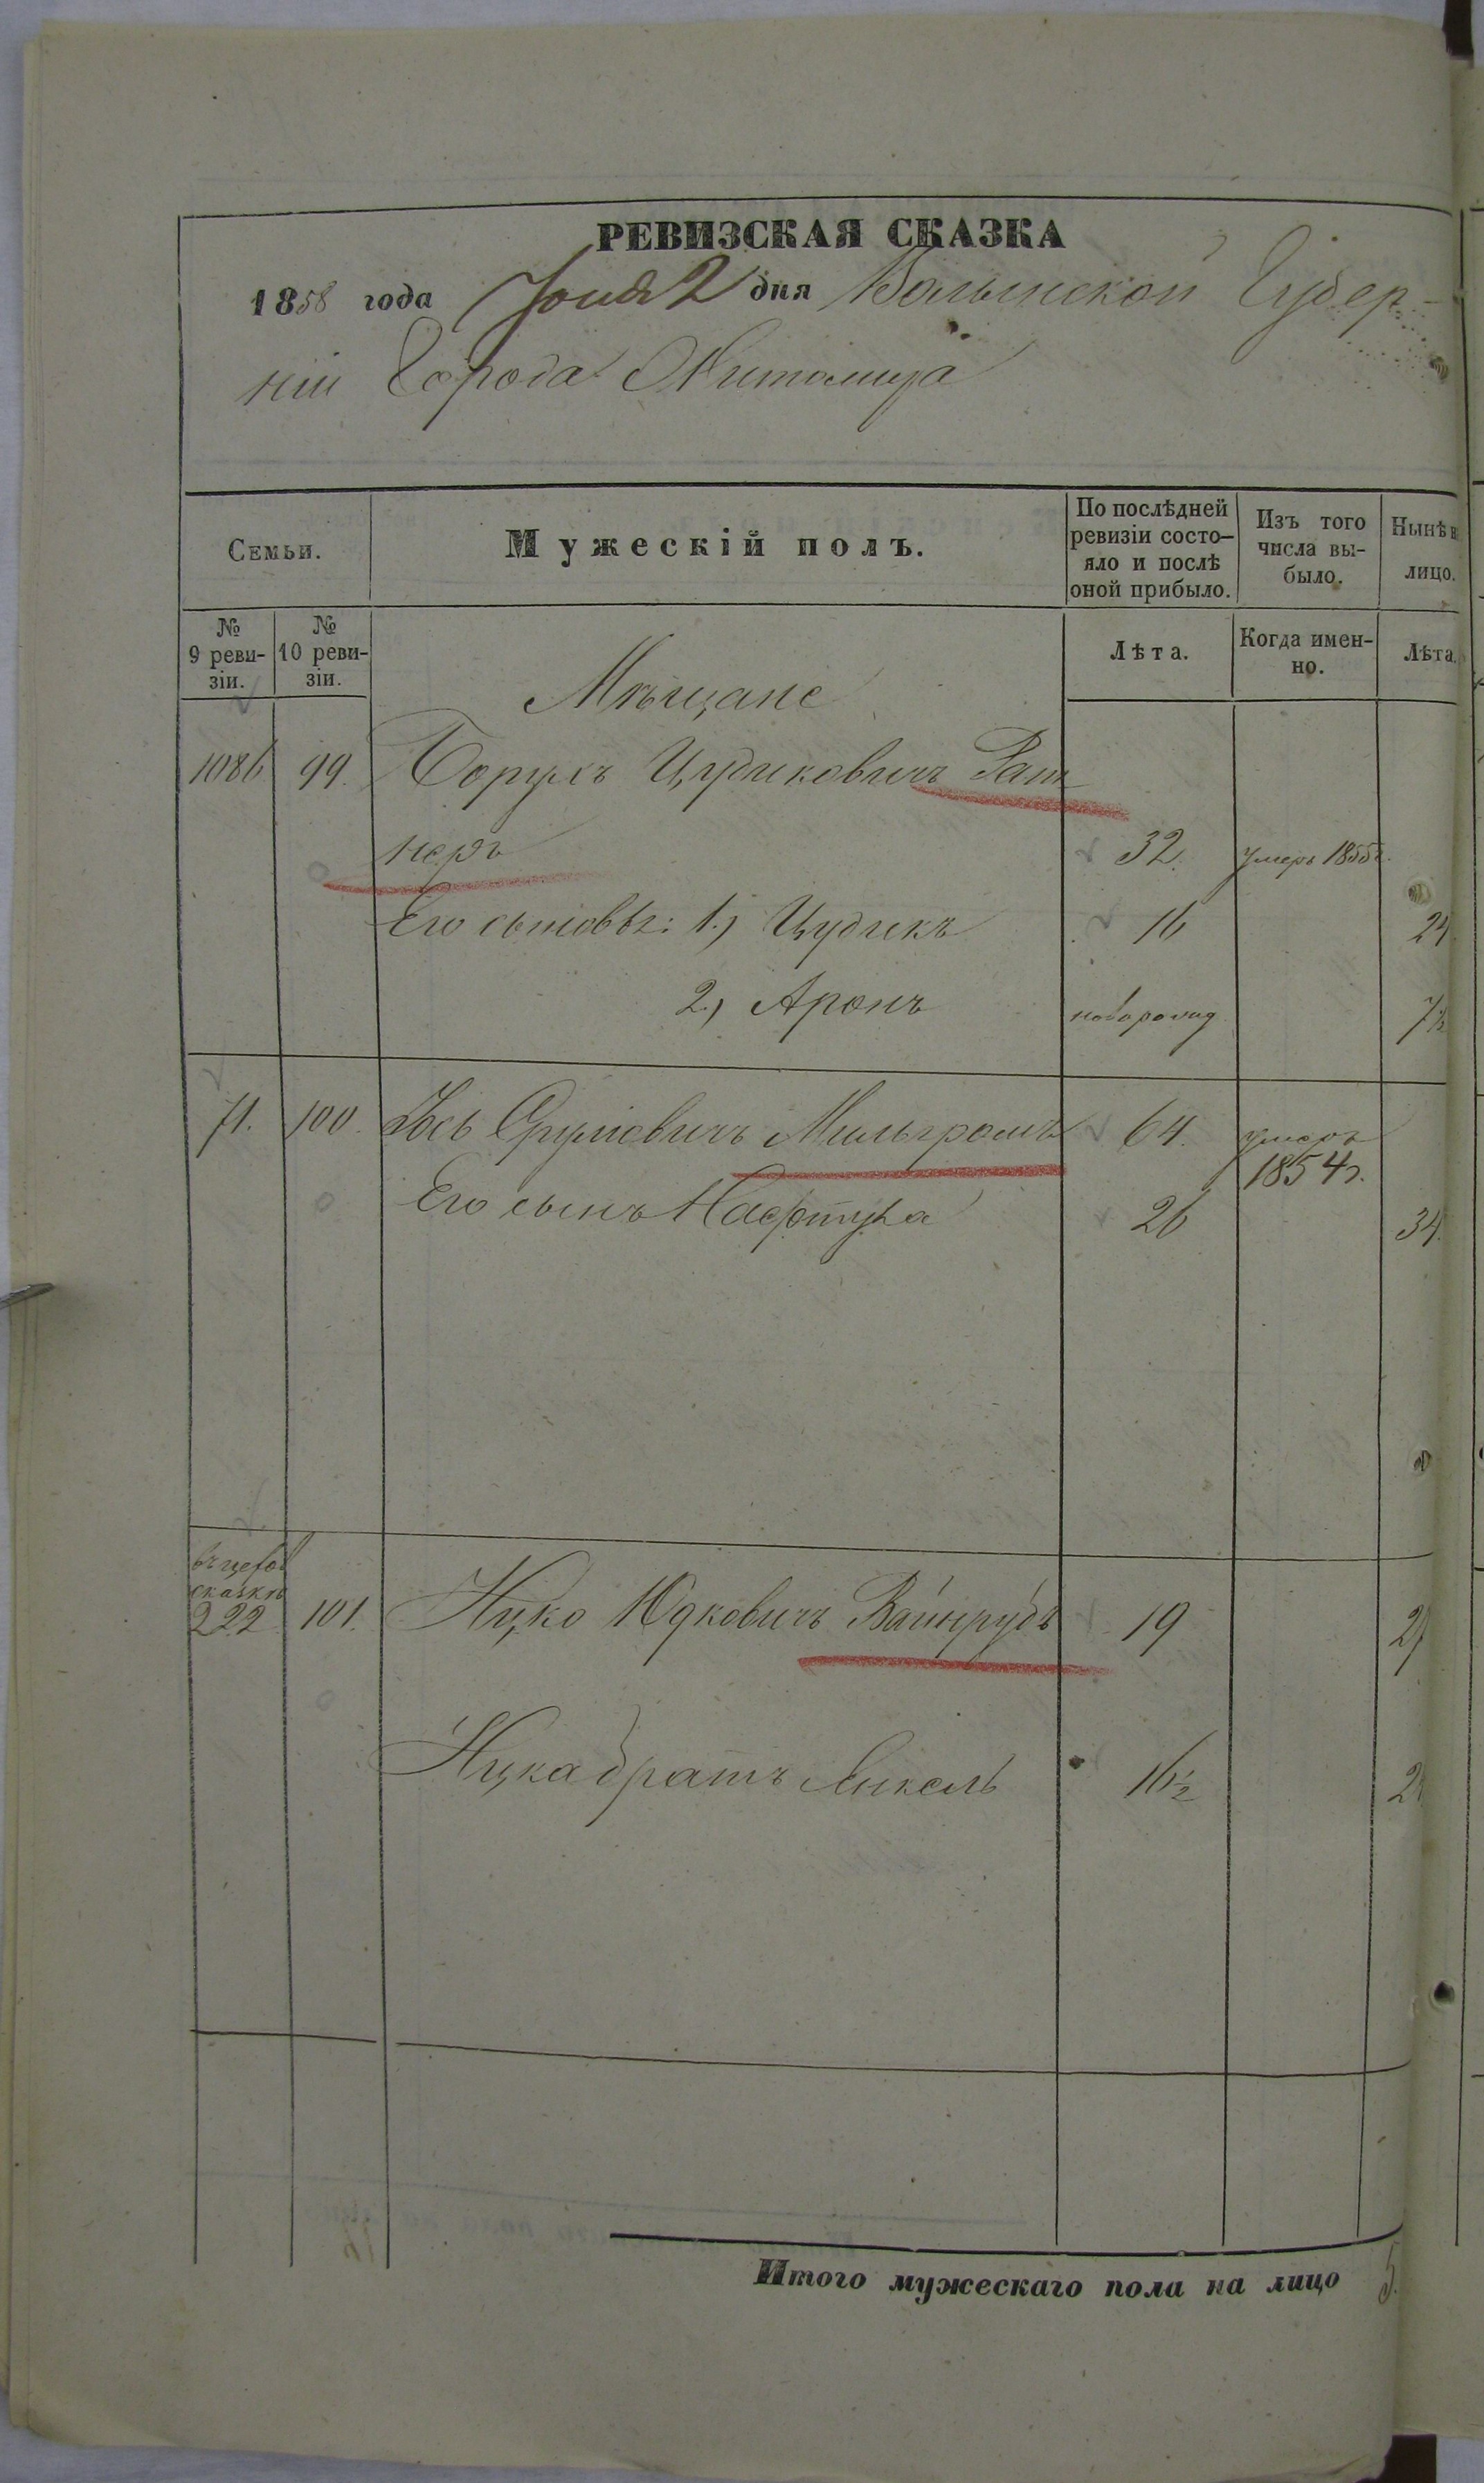 РЕВИЗСКАЯ СКАЗКА
1858 года Іюня 2 дня Волынской Губер-
ніи Города Житомира
Семьи.
Мужескій полъ.
По послѣдней ревизіи состо-
яло и послѣ оной прибыло.
Изъ того числа вы-
было.
Нынѣ на лицо.
№ 9 реви-
зіи.
№ 10 реви-
зіи.
Лѣта.
Когда имен-
но.
Лѣта.
Мѣщане
1086 99. Борухъ Цудиковичъ Рат
неръ 32. умеръ 1855г.
Его сыновья: 1.) Цудикъ 16 24
2.) Аронъ новорожд 7½
71. 100. Іось Сруліовичъ Мильгромъ 64. умеръ
1854г.
Его сынъ Нафтула 26 34.
въ цехов
сказкѣ
222 101. Ицко Юдковичъ Вайнрубъ 19 27
Ицка братъ Янкель 16½ 24
Итого мужескаго пола на лицо 5.